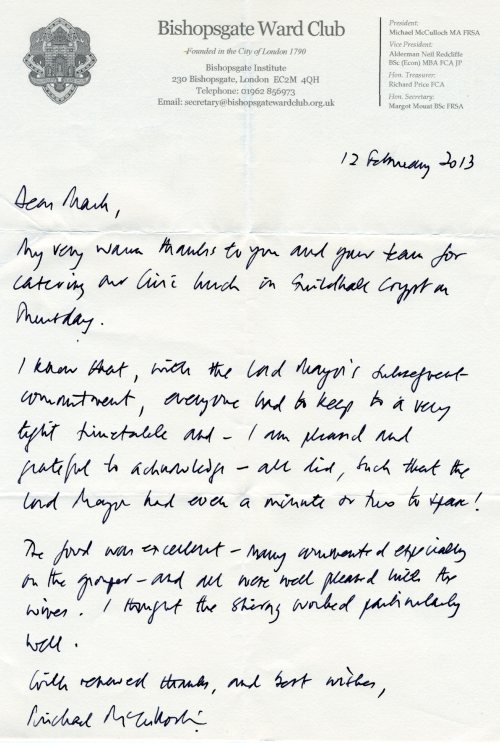 Bishopsgate Ward Club
Founded in the City of London 1790
Bishopsgate Institute
230 Bishopsgate, London EC2M 4QH
Telephone: 01962 856973
Email: secretary@bishopsgatewardclub.org.uk
President:
Michael McCulloch MA FRSA
Vice President:
Alderman Neil Redcliffe
BSc (Econ) MBA FCA JP
Hon. Treasurer:
Richard Price FCA
Hon. Secretary:
Margot Mouat BSc FRSA
12 February 2013
Dear Mark,
My very warm thanks to you and your team for
catering our Civic Lunch in Guildhall Crypt on
Thursday.
I know that, with the Lord Mayor's subsequent
commitment, everyone had to keep to a very
tight timetable and – I am pleased and
grateful to acknowledge – all did, such that the
Lord Mayor had even a minute or two to spare!
The food was excellent – many commented especially
on the – and all were well pleased with the
wines. I thought the worked particularly
well.
With renewed thanks, and best wishes,
Michael McCulloch